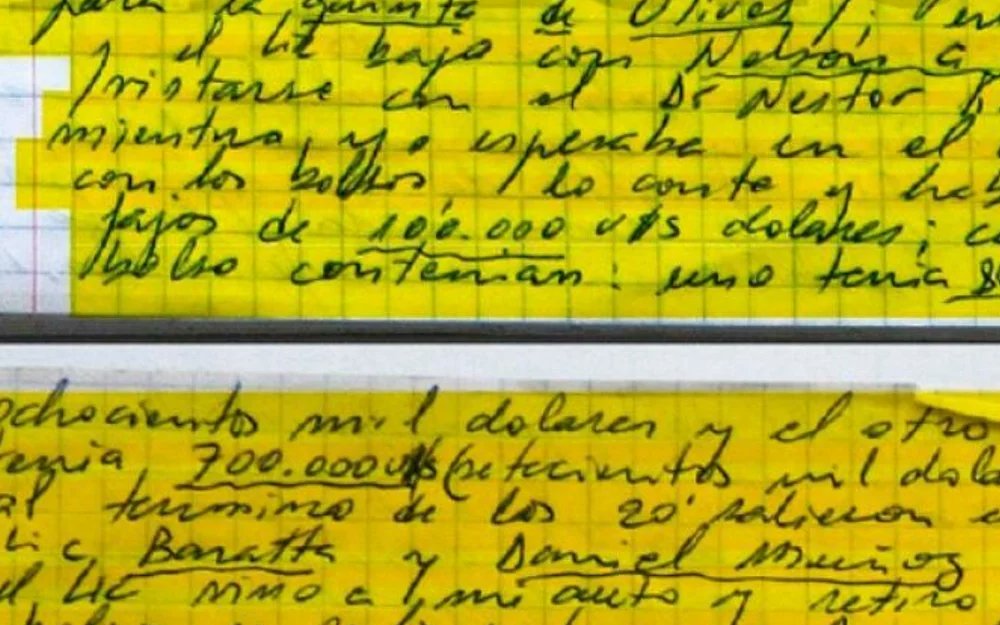 para la quinta de Olivos
y el Lic bajo con Nelson a
ristarse con el Dr Nestor
mientra, yo esperaba en el
con los bolsos, lo conte y
fajos de 100.000 u$s dolares;
bolso contenian: uno tenia
ochocientos mil dolares y el otro
tenia 700.000 u$s (setecientos mil
al termino de los 20' salieron
Lic Baratta y Daniel Muñoz
el Lic vino a mi auto y retiro